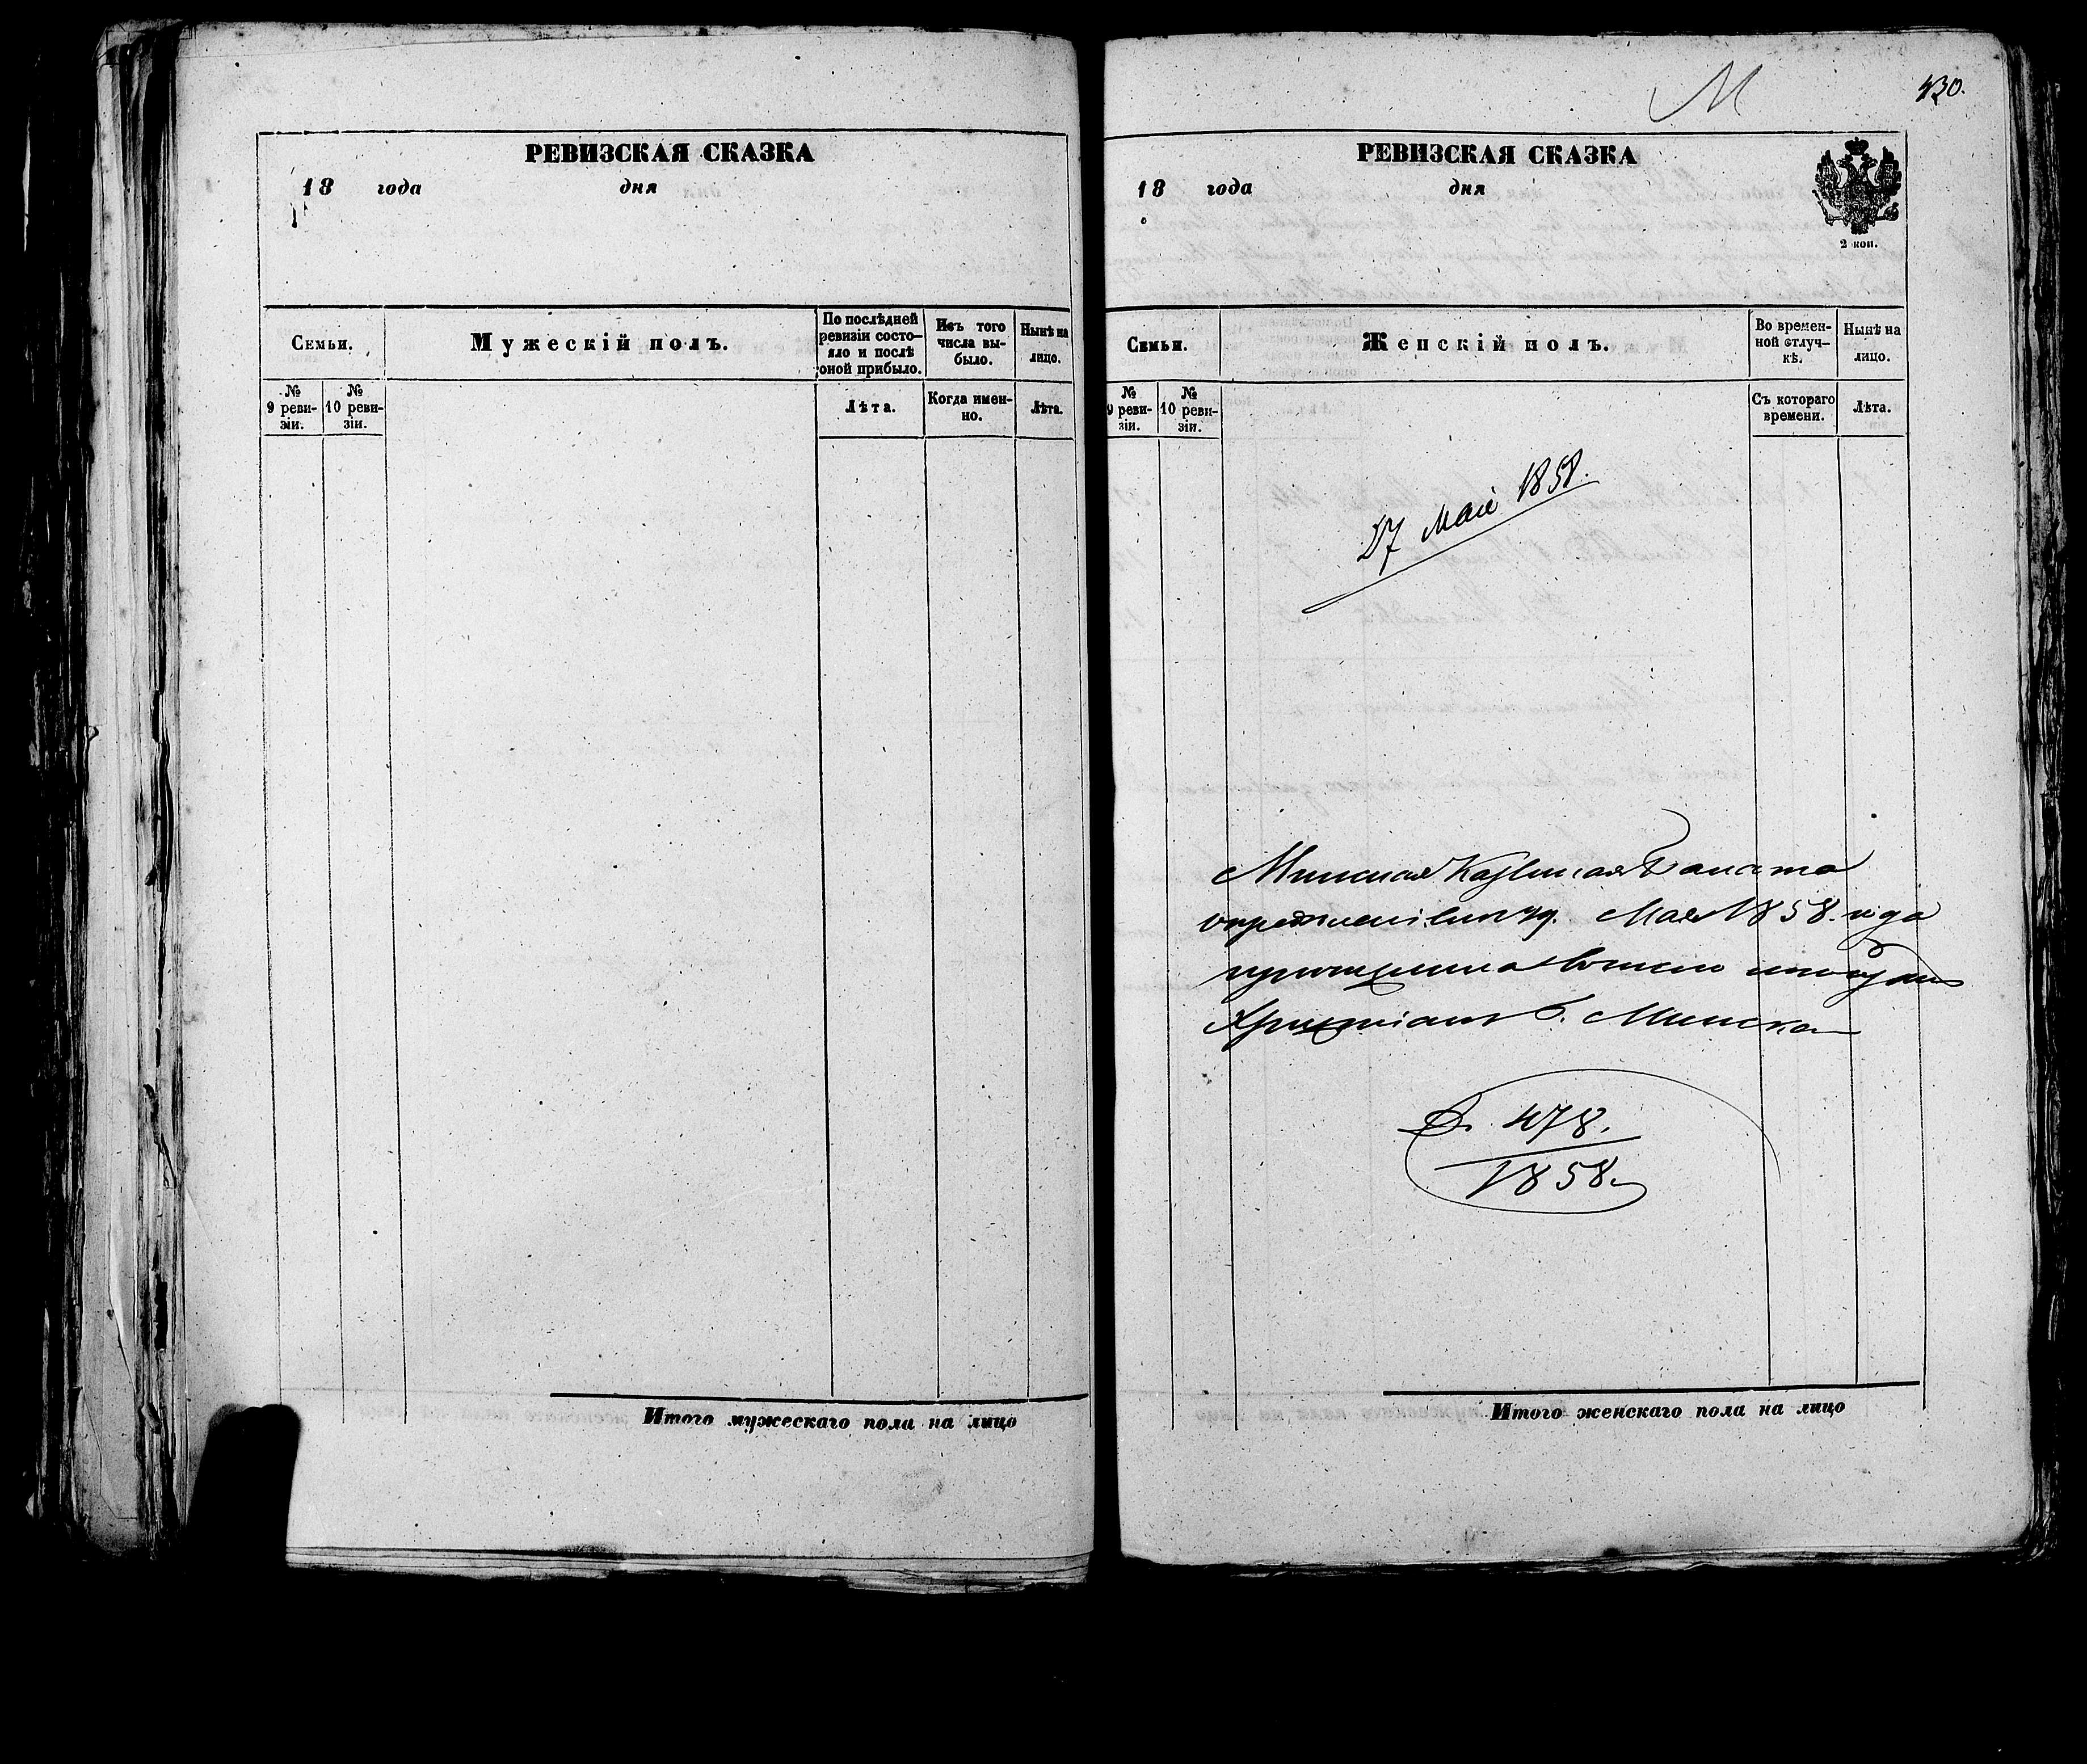 РЕВИЗСКАЯ СКАЗКА
18 года дня
Семьи.
Мужескій полъ.
По послѣдней
ревизіи состо-
яло и послѣ
оной прибыло.
Изъ того
числа вы-
было.
Нынѣ на
лицо.
№
9 реви-
зіи.
№
10 реви-
зіи.
Лѣта.
Когда имен-
но.
Лѣта.
Итого мужескаго пола на лицо
М
430.
РЕВИЗСКАЯ СКАЗКА
18 года дня
2 коп.
Семьи.
Женскій полъ.
Во времен-
ной отлуч-
кѣ.
Нынѣ на
лицо.
№
9 реви-
зіи.
№
10 реви-
зіи.
Съ котораго
времени.
Лѣта.
27 Маія 1858.
Минская Казенная Палата
Мая 1858. года
Христіанъ г. Минска
478.
1858.
Итого женскаго пола на лицо